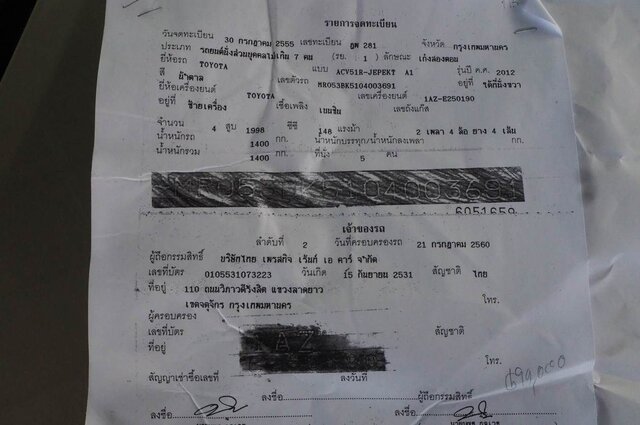 รายการจดทะเบียน
วันจดทะเบียน 30 กรกฎาคม 2555 เลขทะเบียน 281 จังหวัด กรุงเทพมหานคร
ประเภท รถยนต์นั่งส่วนบุคคลไม่เกิน 7 คน (รย. 1) ลักษณะ เก๋งสองตอน
ยี่ห้อรถ TOYOTA แบบ ACV51R-JEPEKT A1 รุ่นปี ค.ศ. 2012
สี น้ำตาล เลขตัวรถ MR053BK5104003691 อยู่ที่ ใต้ที่นั่งขวา
ยี่ห้อเครื่องยนต์ TOYOTA เลขเครื่องยนต์ 1AZ-E250190
อยู่ที่ ซ้ายเครื่อง เชื้อเพลิง เบนซิน เลขถังแก๊ส
จำนวน 4 สูบ 1998 ซีซี 148 แรงม้า 2 เพลา 4 ล้อ ยาง 4 เส้น
น้ำหนักรถ 1400 กก. น้ำหนักบรรทุก/น้ำหนักลงเพลา กก.
น้ำหนักรวม 1400 กก. ที่นั่ง 5 คน
MR053BK5104003691
6051659
เจ้าของรถ
ลำดับที่ 2 วันที่ครอบครองรถ 21 กรกฎาคม 2560
ผู้ถือกรรมสิทธิ์ บริษัทไทย เพรสทิจ เร้นท์ เอ คาร์ จำกัด
เลขที่บัตร 0105531073223 วันเกิด 15 กันยายน 2531 สัญชาติ ไทย
ที่อยู่ 110 ถนนวิภาวดีรังสิต แขวงลาดยาว
เขตจตุจักร กรุงเทพมหานคร โทร.
ผู้ครอบครอง
เลขที่บัตร สัญชาติ
ที่อยู่ 1AZ
โทร.
สัญญาเช่าซื้อเลขที่ ลงวันที่
ลงชื่อ ผู้ถือกรรมสิทธิ์
ลงชื่อ